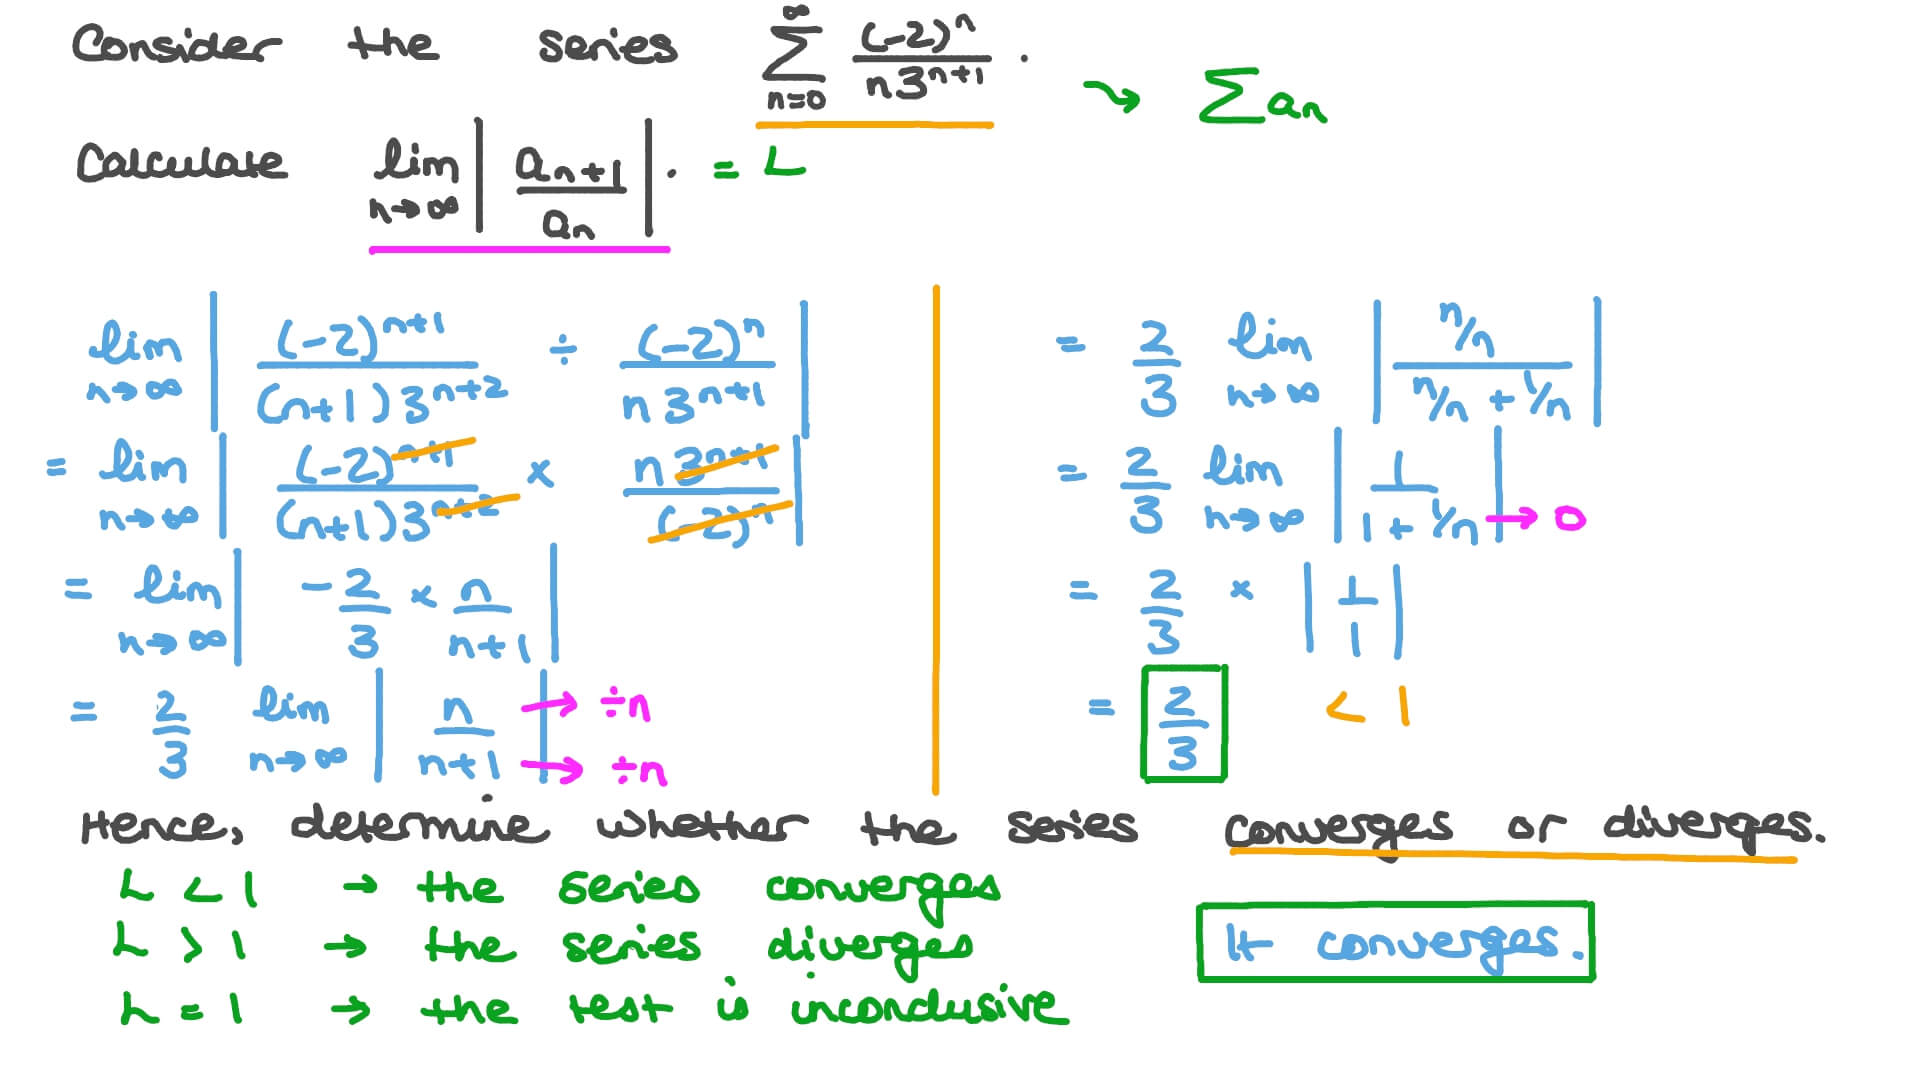 Consider the series ∑_{n=0}^{∞} (-2)^n / n3^{n+1} . ⤳ ∑a_n
Calculate lim_{n→∞} | a_{n+1} / a_n | . = L
lim_{n→∞} | (-2)^{n+1} / (n+1)3^{n+2} ÷ (-2)^n / n3^{n+1} |
= lim_{n→∞} | (-2)^{n+1} / (n+1)3^{n+2} × n3^{n+1} / (-2)^n |
= lim_{n→∞} | -2/3 × n / n+1 |
= 2/3 lim_{n→∞} | n / n+1 | → ÷n → ÷n
= 2/3 lim_{n→∞} | n/n / n/n + 1/n |
= 2/3 lim_{n→∞} | 1 / 1 + 1/n | → 0
= 2/3 × | 1/1 |
= 2/3 < 1
Hence, determine whether the series converges or diverges.
L < 1 → the series converges
L > 1 → the series diverges
L = 1 → the test is inconclusive
It converges.